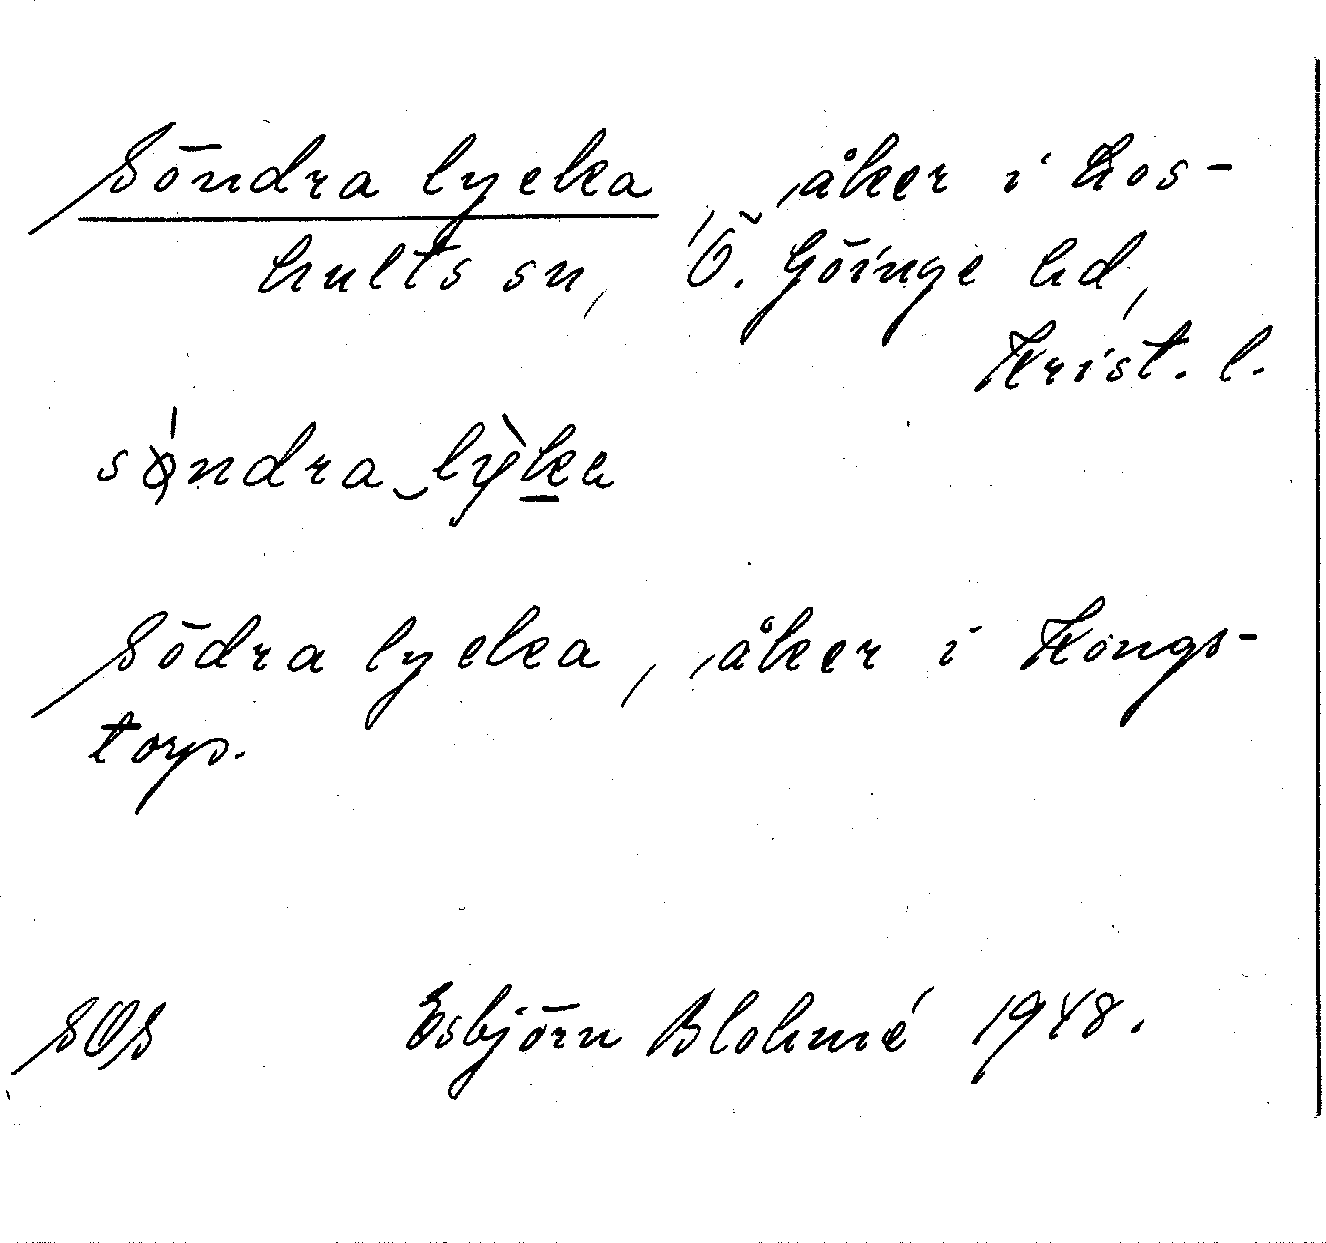 Söndra lycka, åker i Los-
hults sn, Ö. Göinge hd,
Krist. l.
sǿ̨ndra‿lỳḵa
Södra lycka, åker i Kongs-
torp.
SOS Esbjörn Blohmé 1948.